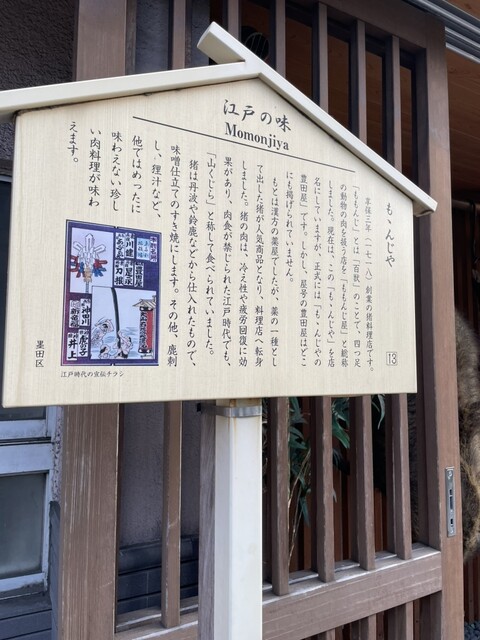 江戸の味
Momonjiya
もゝんじや
13
享保三年(一七一八)創業の猪料理店です。
「ももんじ」とは「百獣」のことで、四つ足
の動物の肉を扱う店を「ももんじ屋」と総称
しました。現在は、この「もゝんじや」を店
名にしていますが、正式には「もゝんじや
豊田屋」です。しかし、屋号の豊田屋はどこ
にも掲げられていません。
もとは漢方の薬屋でしたが、薬の一種とし
て出した猪が人気商品となり、料理店へ転身
しました。猪の肉は、冷え性や疲労回復に効
果があり、肉食が禁じられた江戸時代でも、
「山くじら」と称して食べられていました。
猪は丹波や鈴鹿などから仕入れたもので、
味噌仕立てのすき焼にします。その他、鹿刺
し、狸汁など、
他ではめったに
味わえない珍し
い肉料理が味わ
えます。
江戸時代の宣伝チラシ
墨田区